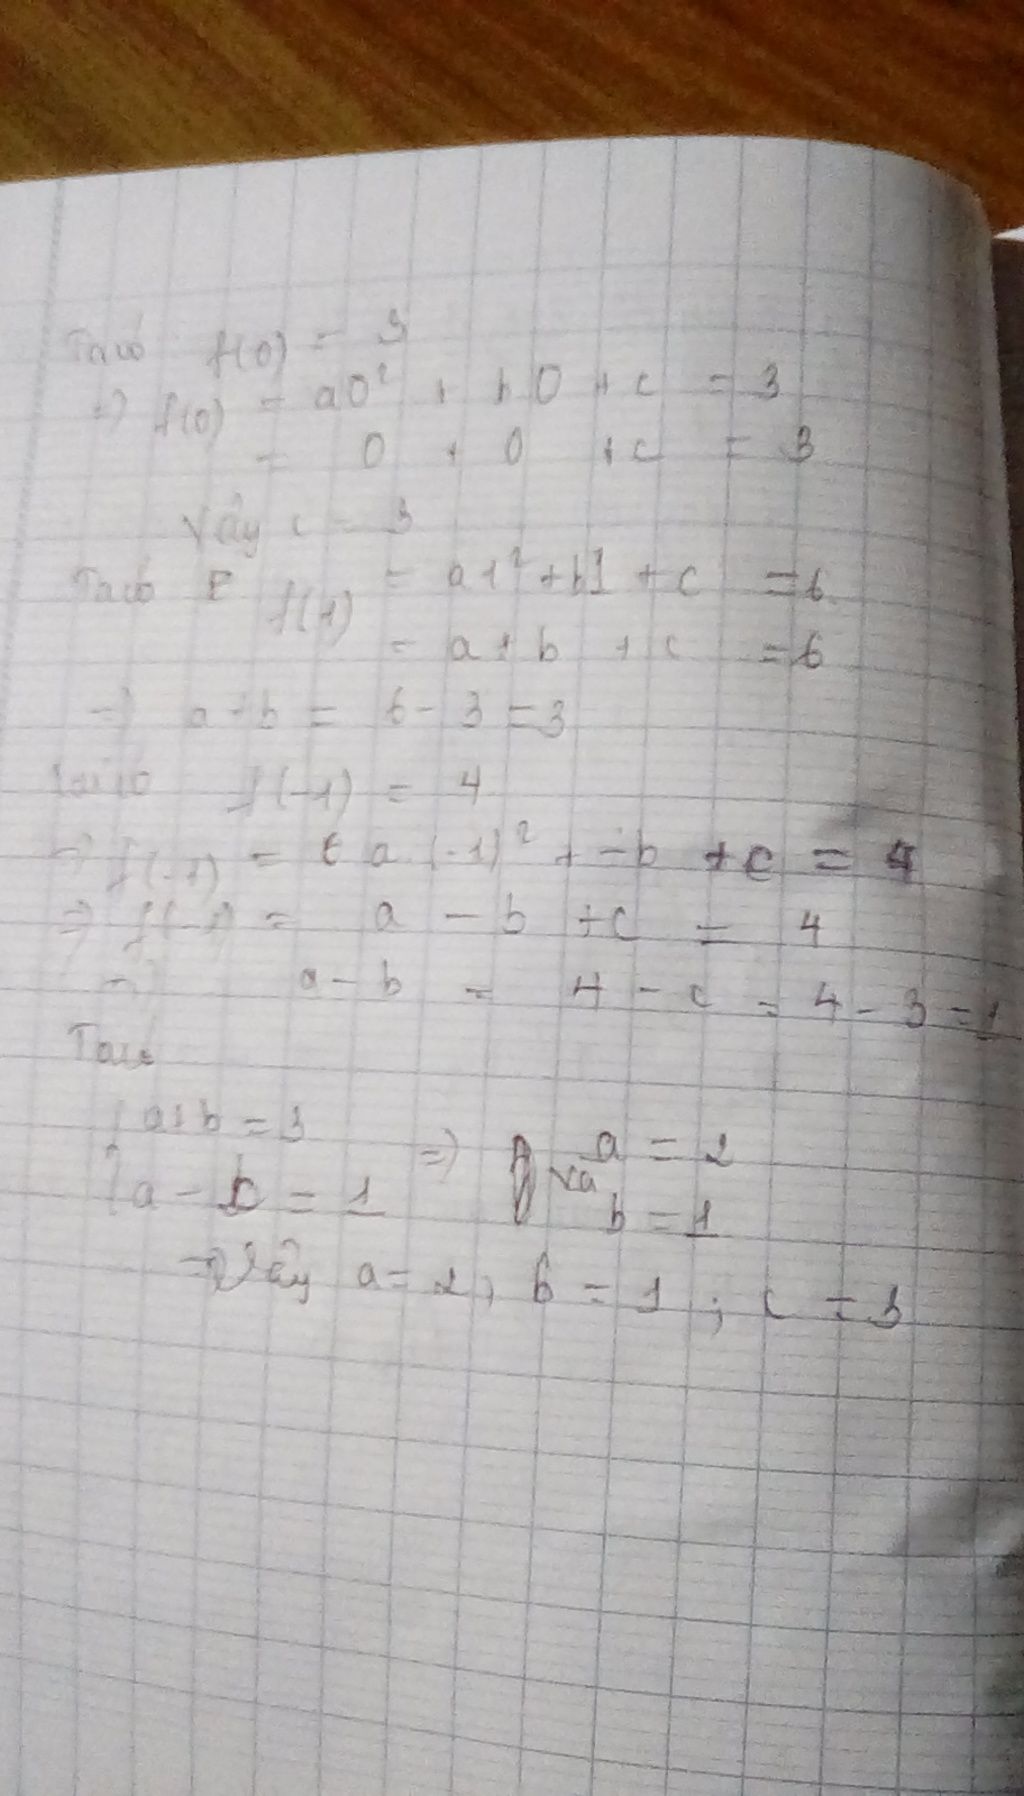 Ta có f(0) = 3
=> f(0) = a0² + b0 + c = 3
= 0 + 0 + c = 3
Vậy c = 3
Ta có f(1) = a1² + b1 + c = 6
= a + b + c = 6
=> a + b = 6 - 3 = 3
Ta có f(-1) = 4
=> f(-1) = a (-1)² + -b + c = 4
=> f(-1) = a - b + c = 4
=> a - b = 4 - c = 4 - 3 = 1
Ta có
{ a + b = 3
{ a - b = 1 => a = 2
và b = 1
=> Vậy a = 2, b = 1 ; c = 3